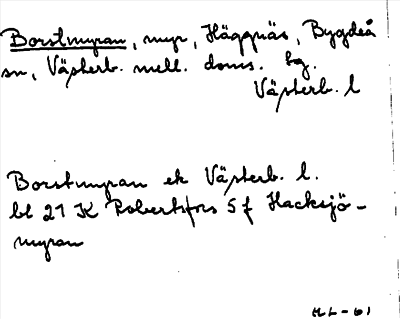 Borstmyran, myr, Häggnäs, Bygdeå
sn, Västerb. mell. doms. tg.
Västerb. l
Borstmyran ek Västerb. l.
bl 21 K Robertsfors 5 f Hacksjö-
myran
HL-61